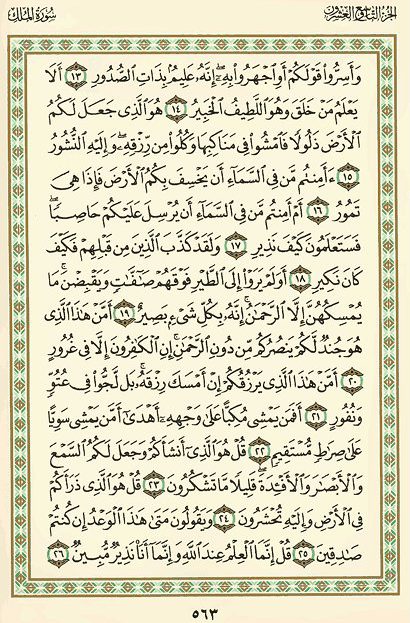 سُورَةُ المُلْكِ الجُزْءُ التَّاسِعُ وَالعِشْرُونَ
وَأَسِرُّوا۟ قَوْلَكُمْ أَوِ ٱجْهَرُوا۟ بِهِۦٓ إِنَّهُۥ عَلِيمٌۢ بِذَاتِ ٱلصُّدُورِ ١٣ أَلَا
يَعْلَمُ مَنْ خَلَقَ وَهُوَ ٱللَّطِيفُ ٱلْخَبِيرُ ١٤ هُوَ ٱلَّذِى جَعَلَ لَكُمُ
ٱلْأَرْضَ ذَلُولًا فَٱمْشُوا۟ فِى مَنَاكِبِهَا وَكُلُوا۟ مِن رِّزْقِهِۦ وَإِلَيْهِ ٱلنُّشُورُ
١٥ ءَأَمِنتُم مَّن فِى ٱلسَّمَآءِ أَن يَخْسِفَ بِكُمُ ٱلْأَرْضَ فَإِذَا هِىَ
تَمُورُ ١٦ أَمْ أَمِنتُم مَّن فِى ٱلسَّمَآءِ أَن يُرْسِلَ عَلَيْكُمْ حَاصِبًا ۖ
فَسَتَعْلَمُونَ كَيْفَ نَذِيرِ ١٧ وَلَقَدْ كَذَّبَ ٱلَّذِينَ مِن قَبْلِهِمْ فَكَيْفَ
كَانَ نَكِيرِ ١٨ أَوَلَمْ يَرَوْا۟ إِلَى ٱلطَّيْرِ فَوْقَهُمْ صَـٰٓفَّـٰتٍ وَيَقْبِضْنَ ۚ مَا
يُمْسِكُهُنَّ إِلَّا ٱلرَّحْمَـٰنُ ۚ إِنَّهُۥ بِكُلِّ شَىْءٍۭ بَصِيرٌ ١٩ أَمَّنْ هَـٰذَا ٱلَّذِى
هُوَ جُندٌ لَّكُمْ يَنصُرُكُم مِّن دُونِ ٱلرَّحْمَـٰنِ ۚ إِنِ ٱلْكَـٰفِرُونَ إِلَّا فِى غُرُورٍ
٢٠ أَمَّنْ هَـٰذَا ٱلَّذِى يَرْزُقُكُمْ إِنْ أَمْسَكَ رِزْقَهُۥ ۚ بَل لَّجُّوا۟ فِى عُتُوٍّ
وَنُفُورٍ ٢١ أَفَمَن يَمْشِى مُكِبًّا عَلَىٰ وَجْهِهِۦٓ أَهْدَىٰٓ أَمَّن يَمْشِى سَوِيًّا
عَلَىٰ صِرَٰطٍ مُّسْتَقِيمٍ ٢٢ قُلْ هُوَ ٱلَّذِىٓ أَنشَأَكُمْ وَجَعَلَ لَكُمُ ٱلسَّمْعَ
وَٱلْأَبْصَـٰرَ وَٱلْأَفْـِٔدَةَ ۖ قَلِيلًا مَّا تَشْكُرُونَ ٢٣ قُلْ هُوَ ٱلَّذِى ذَرَأَكُمْ
فِى ٱلْأَرْضِ وَإِلَيْهِ تُحْشَرُونَ ٢٤ وَيَقُولُونَ مَتَىٰ هَـٰذَا ٱلْوَعْدُ إِن كُنتُمْ
صَـٰدِقِينَ ٢٥ قُلْ إِنَّمَا ٱلْعِلْمُ عِندَ ٱللَّهِ وَإِنَّمَآ أَنَا۠ نَذِيرٌ مُّبِينٌ ٢٦
٥٦٣